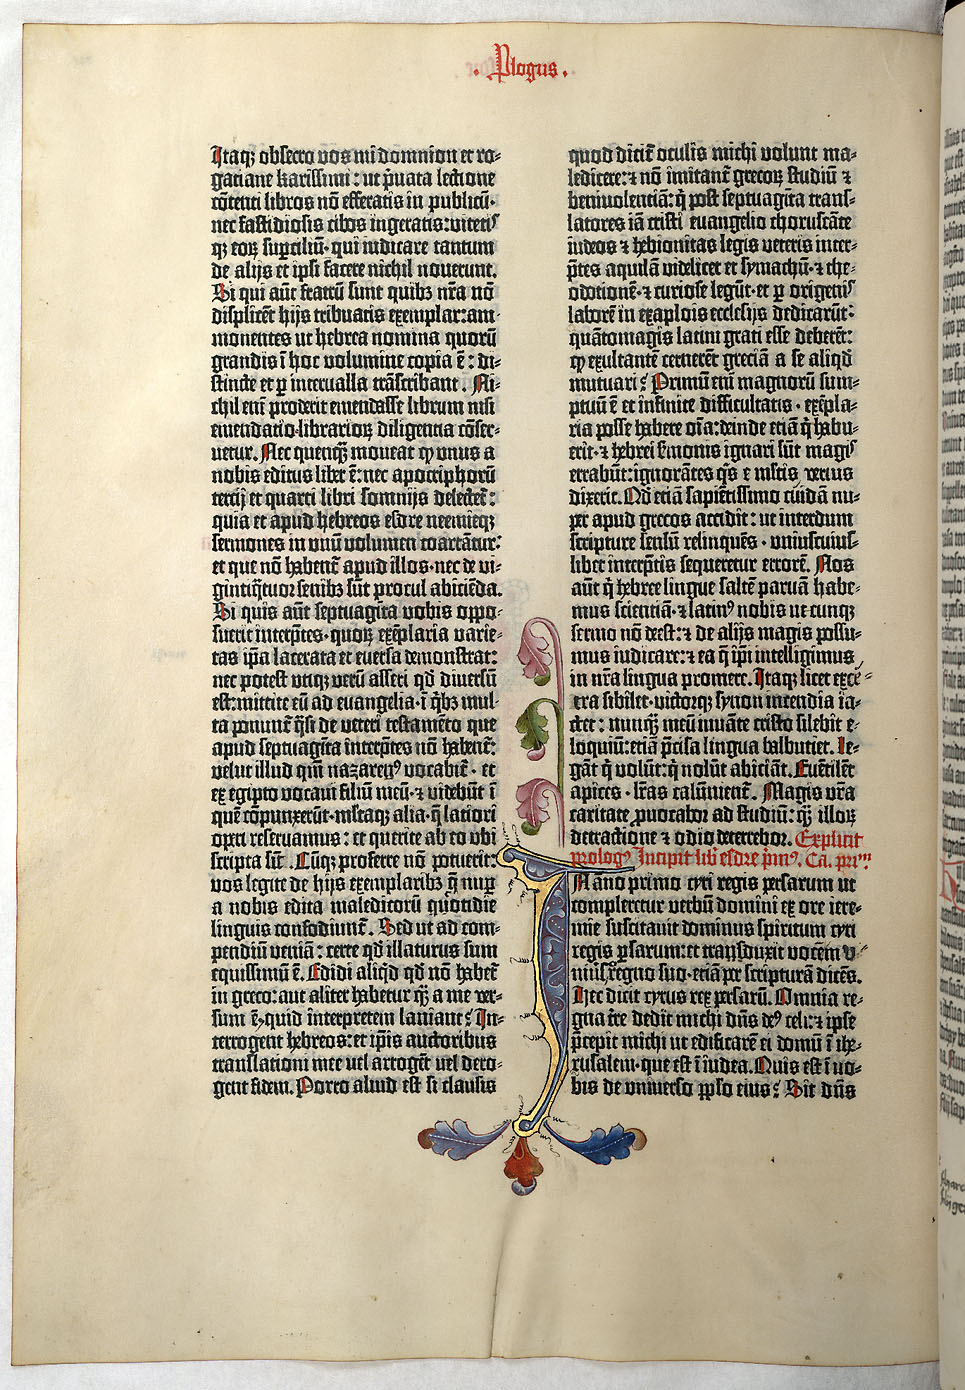 · Plogus ·
Itaqꝫ obsecro vos mi domnion et ro-
gatiane karissimi: ut pͥuata lectione
cōtenti libros nō efferatis in publicū·
nec fastidiosis cibos ingeratis: vitetiſ
qꝫ eoꝝ superciliū· qui iudicare tantum
de alijs et ipsi facere nichil noverunt.
Si qui aūt fratrū sunt quibꝫ nr̄a nō
displicēt hijs tribuatis exemplar: am-
monentes ut hebrea nomina quorū
grandis ī hoc volumine copia ē: di-
stincte et ꝑ intervalla trāscribant. Ni-
chil enī proderit emendasse librum nisi
emendatio·librarioꝝ diligentia cōser-
vetur. Nec quenqꝫ moveat qꝫ vnus a
nobis editus liber ē: nec apocriphorū
tercij et quarti libri somnijs delectet̄:
quia et apud hebreos esdre neemieqꝫ
sermones in vnū volumen coartātur:
et que nō habent̄ apud illos·nec de vi-
gintiq̄tuor senibꝫ sūt procul abiciēda.
Si quis aūt septuagīta vobis oppo-
suerit interp̄tes·quoꝝ exēplaria varie-
tas ip̄a lacerata et eversa demonstrat:
nec potest vtiqꝫ verū asseri qd̄ diversū
est: mittite eū ad evangelia·ī qͥbꝫ mul-
ta ponunt̄ q̄si de veteri testamēto que
apud septuagīta interp̄tes nō habent̄:
velut illud qm̄ nazareꝰ vocabit̄· et
ex egipto vocavi filiū meū·⁊ videbūt ī
quē cōpunxerūt·mltaqꝫ alia·q̄ latiori
operi reservamus: et querite ab eo vbi
scripta sūt. Cūqꝫ proferre nō potuerit:
vos legite de hijs exemplaribꝫ q̄ nuꝑ
a nobis edita maledicorū quotidie
linguis confodiunt̄. Sed ut ad com-
pendiū veniā: certe qd̄ illaturus sum
equissimū ē. Edidi aliqd̄ qd̄ nō habet̄
in greco: aut aliter habetur qꝫ a me ver-
sum ē·quid interpretem laniant? In-
terrogent hebreos: et ip̄is auctoribus
translationi mee vel arrogēt vel dero-
gent fidem. Porro aliud est si clausis
quod dicit̄ oculis michi volunt ma-
ledicere: ⁊ nō imitant̄ grecoꝝ studiū ⁊
benivolentiā: q̄ post septuagīta trans-
latores iā cristi evangelio choruscāte
iudeos ⁊ hebionitas legis veteris inter-
p̄tes aquilā videlicet et symachū·⁊ the-
odotionē·⁊ curiose legūt·et ꝑ origeniſ
laborē in exaplois ecclesijs dedicarūt:
quātomagis latini grati esse deberēt:
qꝫ exultantē cernerēt greciā a se aliqd̄
mutuari? Primū enī magnorū sum-
ptuū ē et infinite difficultatis· exēpla-
ria posse habere oīa: deinde etiā q̄ habu-
erīt·⁊ hebrei s̄monis ignari sūt magiſ
errabūt: ignorātes qͥs e mltis verius
dixerit. Qd̄ etiā sapiētissimo cuidā nu-
per apud grecos accidit: ut interdum
scripture sensū relinquēs· vniuscuius-
libet interp̄tis sequeretur errorē. Nos
aūt q̄ hebree lingue saltē parvā habe-
mus scientiā·⁊ latinꝰ nobis ut cunqꝫ
sermo nō deest: ⁊ de alijs magis possu-
mus iudicare: ⁊ ea q̄ ip̄i intelligimus
in nr̄a lingua promere. Itaqꝫ licet excē-
tra sibilet·victorqꝫ synon incendia ia-
ctet: nunqꝫ meū iuvāte cristo silebit e-
loquiū: etiā p̄cisa lingua balbutiet. Le-
gāt q̄ volūt: q̄ nolūt abiciāt. Eventilēt
apices· lr̄as calūnient̄. Magis vr̄a
caritate ꝓvocabor ad studiū: qꝫ illoꝝ
detractione ⁊ odio deterrebor. Explicit
prologꝰ Incipit lib̄ esdre p̄mꝰ. Ca. prīm
IN anno primo cyri regis persarum ut
compleretur verbū domini ex ore iere-
mie suscitavit dominus spiritum cyri
regis ꝑsarum: et transduxit vocem v-
niūs̄ regno suo·etiā per scripturā dicēs.
Hec dicit cyrus rex persarū. Omnia re-
gna t̄re dedit michi dn̄s deꝰ celi: ⁊ ipse
p̄cepit michi ut edificarē ei domū ī ihe-
rusalem·que est ī iudea. Quis est ī vo-
bis de vniverso ꝓpso eius? Sit dn̄s